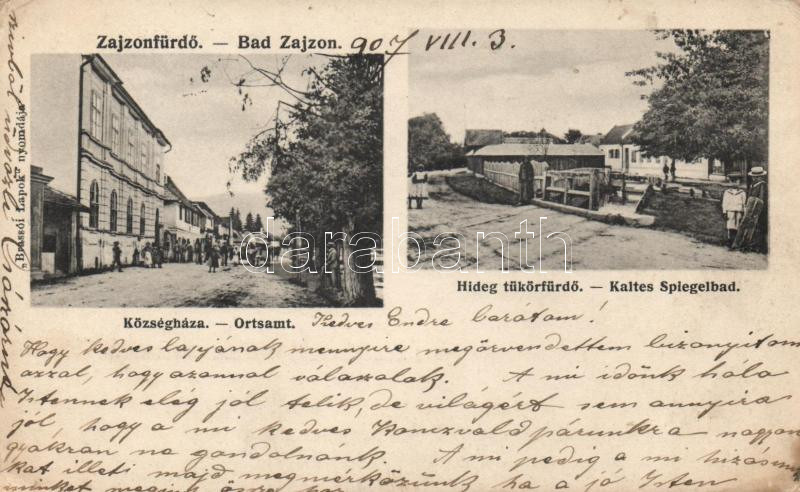 Zajzonfürdő. — Bad Zajzon. 907 VIII. 3.
"Brassói Lapok" nyomdája
darabanth.com
Hideg tükörfürdő. — Kaltes Spiegelbad.
Községháza. — Ortsamt. Kedves Endre barátom!
Hogy kedves lapjának mennyire megörvendettem bizonyitom
azzal, hogy azonnal válaszolok. A mi időnk hála
Istennek elég jól telik, de világért sem annyira
jól, hogy a mi kedves párunkra nagyon
gyakran ne gondolnánk. A mi pedig a mi
kat illeti majd megmérkőzünk ha a jó Isten
minket megint össze